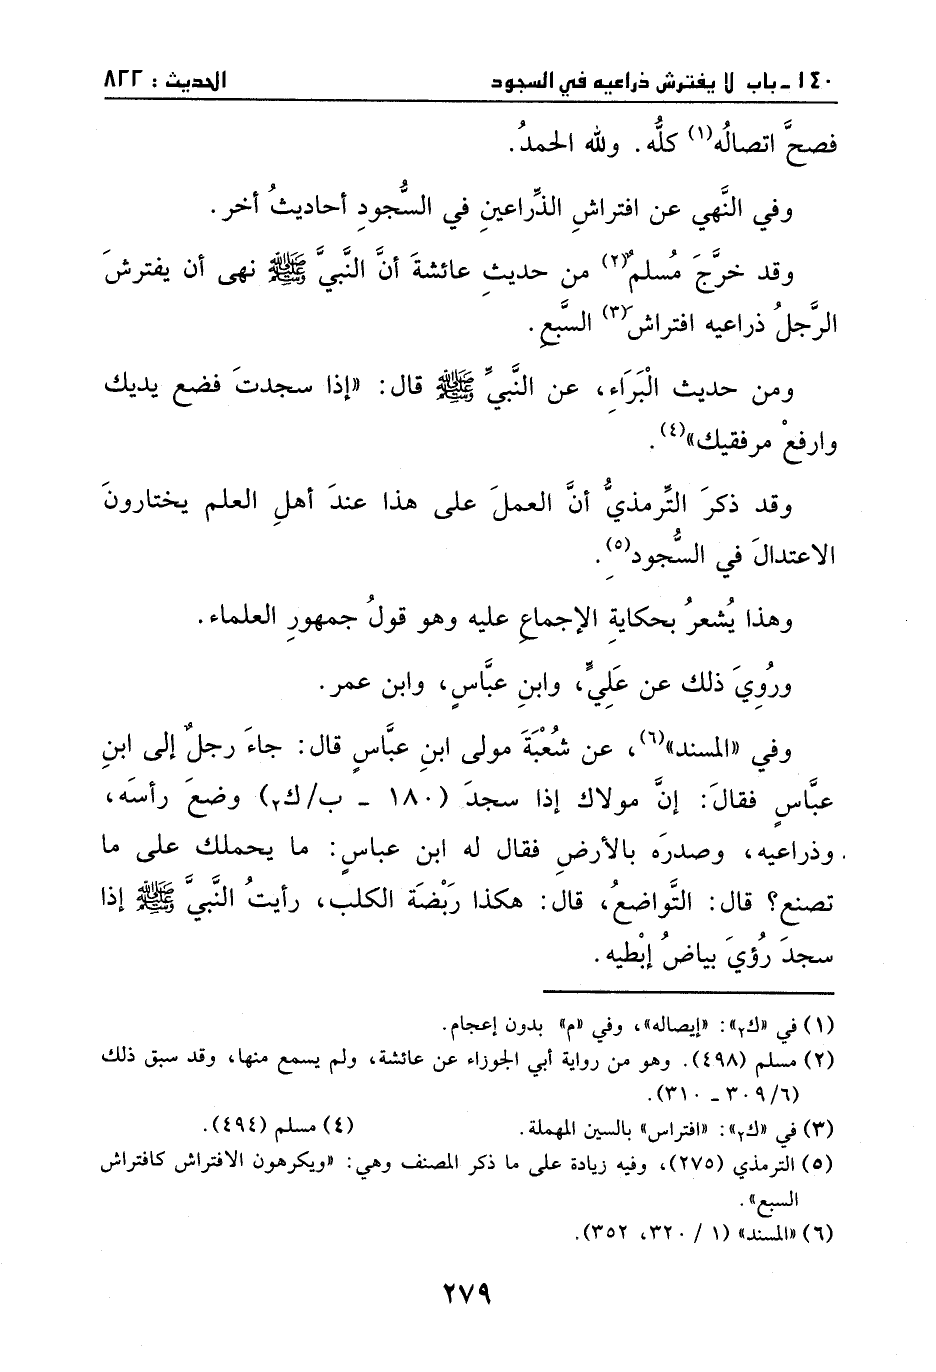 ١٤٠ - باب لا يفترش ذراعيه في السجود الحديث : ٨٢٢
فصحَّ اتصالُه(١) كلُّه. ولله الحمدُ.
وفي النَّهي عن افتراشِ الذِّراعينِ في السُّجودِ أحاديثُ أخر.
وقد خرَّجَ مُسلمٌ(٢) من حديثِ عائشةَ أنَّ النَّبيَّ ﷺ نهى أن يفترشَ
الرَّجلُ ذراعيه افتراش(٣) السَّبعِ.
ومن حديث الْبَرَاءِ، عن النَّبيِّ ﷺ قال: «إذا سجدتَ فضع يديك
وارفعْ مرفقيك»(٤).
وقد ذكرَ التِّرمذيُّ أنَّ العملَ على هذا عندَ أهلِ العلم يختارونَ
الاعتدالَ في السُّجودِ(٥).
وهذا يُشعرُ بحكايةِ الإجماعِ عليه وهو قولُ جمهورِ العلماء.
ورُويَ ذلك عن عَلِيٍّ، وابنِ عبَّاسٍ، وابن عمر.
وفي «المسند»(٦)، عن شُعْبَةَ مولى ابنِ عبَّاسٍ قال: جاءَ رجلٌ إلى ابنِ
عبَّاسٍ فقالَ: إنَّ مولاك إذا سجدَ (١٨٠ - ب/ك٢) وضعَ رأسَه،
وذراعيه، وصدرَه بالأرضِ فقال له ابن عباسٍ: ما يحملك على ما
تصنع؟ قال: التَّواضعُ، قال: هكذا رَبْضَة الكلب، رأيتُ النَّبيَّ ﷺ إذا
سجدَ رُؤيَ بياضُ إبْطيه.
(١) في «ك٢»: «إيصاله»، وفي «م» بدون إعجام.
(٢) مسلم (٤٩٨). وهو من رواية أبي الجوزاء عن عائشة، ولم يسمع منها، وقد سبق ذلك
(٦/ ٣٠٩ - ٣١٠).
(٣) في «ك٢»: «افتراس» بالسين المهملة. (٤) مسلم (٤٩٤).
(٥) الترمذي (٢٧٥)، وفيه زيادة على ما ذكر المصنف وهي: «ويكرهون الافتراش كافتراش
السبع».
(٦) «المسند» (١ / ٣٢٠، ٣٥٢).
٢٧٩